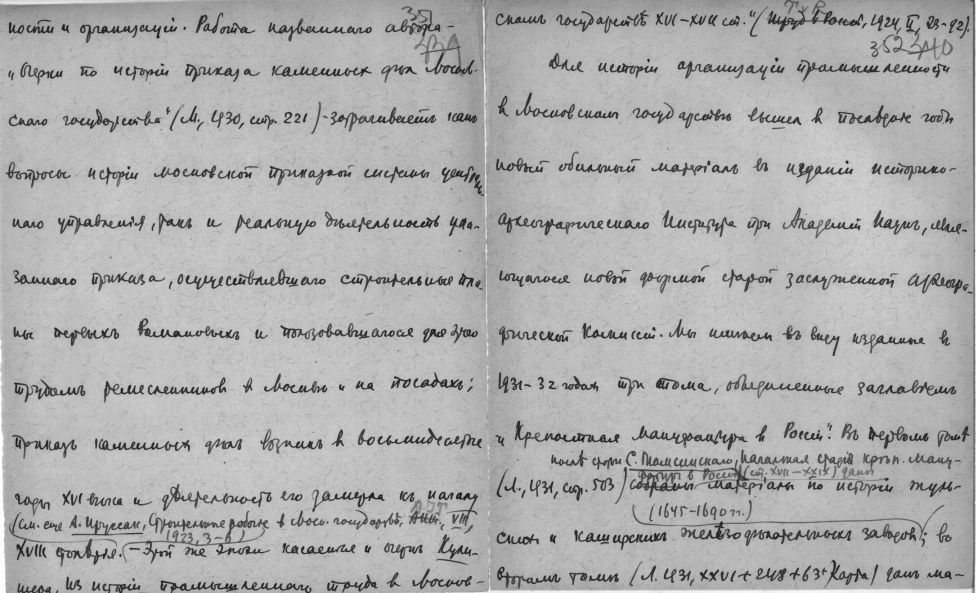 ности и организацiй. Работа названного автора –
351
„Очерки по исторiи приказа каменных дѣл Москов-
скаго государства“ (М., 1930, стр. 221) – затрагиваетъ какъ
вопросы исторiи московской приказной системы централь-
наго управленiя, такъ и реальную дѣятельность ука-
заннаго приказа, осуществлявшаго строительные пла-
ны первыхъ Романовыхъ и пользовавшагося для этого
трудомъ ремесленников в Москвѣ и на посадахъ;
приказъ каменных дѣлъ возникъ в восьмидесятые
годы XVI вѣка и дѣятельность его замерла къ началу
(см. еще А. Строительные рабочие в Моск. государствѣ. VIII,
1923, 3–6)
XVIII столѣтiя. – Этой же эпохи касается и очерк Кули-
шера, Из исторiи промышленнаго труда в Москов-
ском государствѣ XVI–XVII ст. “ (1924, II, 23–92).
352 340
Для исторiи организацiй промышленности
в Московском государствѣ вышел в последнiе годы
новый обильный матерiалъ въ изданiи историко-
археографическаго Института при Академiи Наукъ, явля-
ющагося новой формой старой заслуженной Археогра-
фической Комиссiи. Мы имѣем въ виду изданные в
1931–32 годах три тома, объединенные заглавiемъ
„Крепостная Мануфактура в Россiи“. Въ первомъ томѣ
послѣ статьи С. Томсинскаго, начальная стадiя крѣп. ману-
фактуры в Россiи (ст. VII–XXIX) даны
(Л., 1931, стр. 503) собраны матерiалы по исторiи туль-
(1645–1690 гг.)
ских и каширских желѣзодѣлательных заводов; во
втором томѣ (Л. 1931, XXVI + 248 + 63 + Карта) данъ ма-